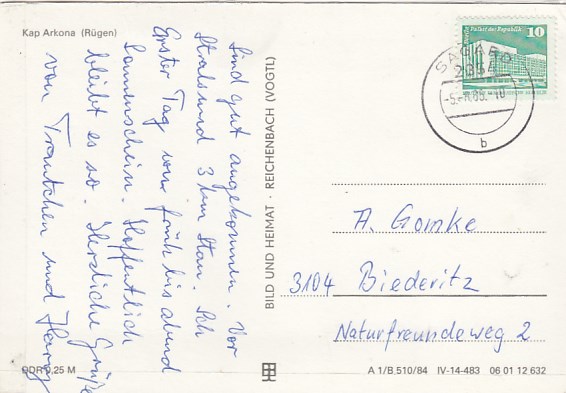 Kap Arkona (Rügen)
Sind gut angekommen. Vor
Stralsund 3 km Stau.
Erster Tag von früh bis abend
Sonnenschein. Hoffentlich
bleibt es so. Herzliche Grüße
von Trautchen und
DDR 0,25 M
BILD UND HEIMAT · REICHENBACH (VOGTL)
Palast der Republik
10
SAGARD
b
A. Gomke
3104 Biederitz
Naturfreundeweg 2
A 1/B 510/84 IV-14-483 06 01 12 632